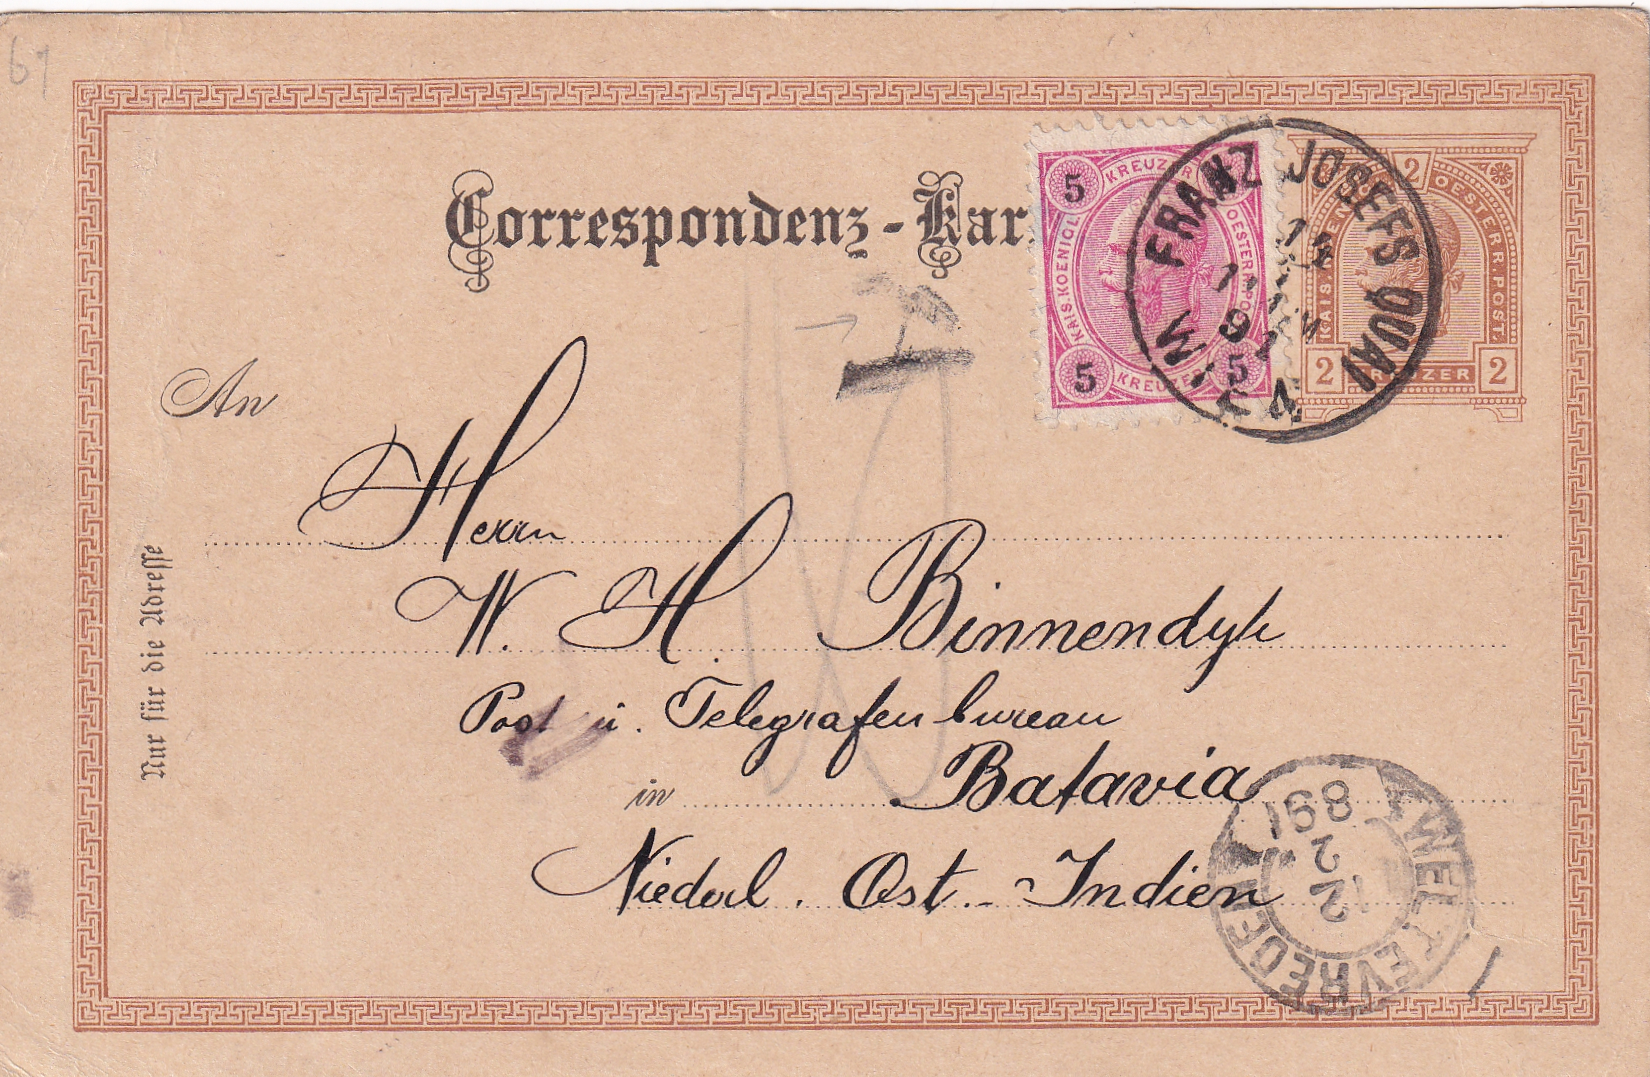 67
Correspondenz-Kar
5 KREUZER
KAIS. KOENIGL. OESTERR. POST
5 KREUZER 5
2
OESTERR. POST.
2 KREUZER 2
WIEN FRANZ JOSEFS QUAI
91
T
An
Herrn
W. H. Binnendyk
Post u. Telegrafenbureau
in Batavia
Niederl. Ost-Indien
Nur für die Adresse
WELTEVREDEN
12
2
891